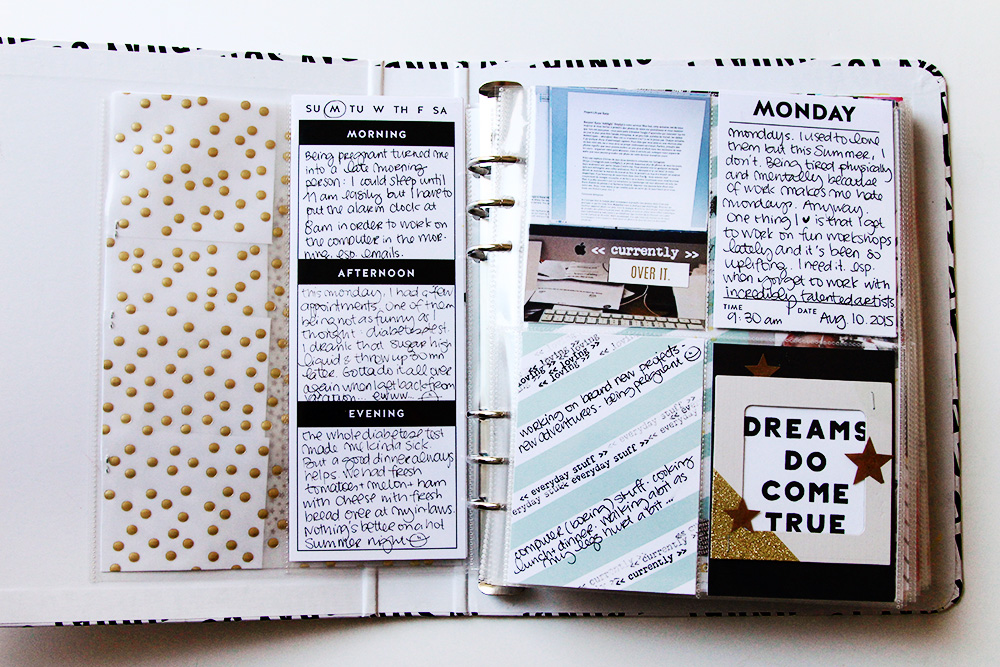 SU M TU W TH F SA
MORNING
Being pregnant turned me
into a late morning
person: I could sleep until
11 am easily but I have to
put the alarm clock at
8am in order to work on
the computer in the mor-
ning, esp. emails.
AFTERNOON
this monday, I had a few
appointments. One of them
being not as funny as I
thought: diabetes test.
I drank that sugar high
liquid & threw up 30 mn
later. Gotta do it all over
again when I get back from
vacation... ewww
EVENING
the whole diabetese test
made me kinda sick.
But a good dinner always
helps. We had fresh
tomatoes + melon + ham
with cheese with fresh
bread over at my in laws.
Nothing's better on a hot
Summer night
<< currently >>
OVER IT.
MONDAY
mondays. I used to love
them but this Summer, I
don't. Being tired physically
and mentally because
of work makes me hate
mondays. Anyway.
One thing I ♥ is that I get
to work on fun workshops
lately and it's been so
uplifting. I need it. esp.
when you get to work with
incredibly talented artists
TIME
9:30 am
DATE
Aug. 10. 2015
<< loving >>
working on brand new projects -
new adventures - being pregnant
<< everyday stuff >>
<< everyday stuff >> << everyday
computer (boring) stuff. cooking
lunch + dinner. walking a bit as
my legs hurt a bit...
<< currently >>
<< currently >>
DREAMS
DO
COME
TRUE